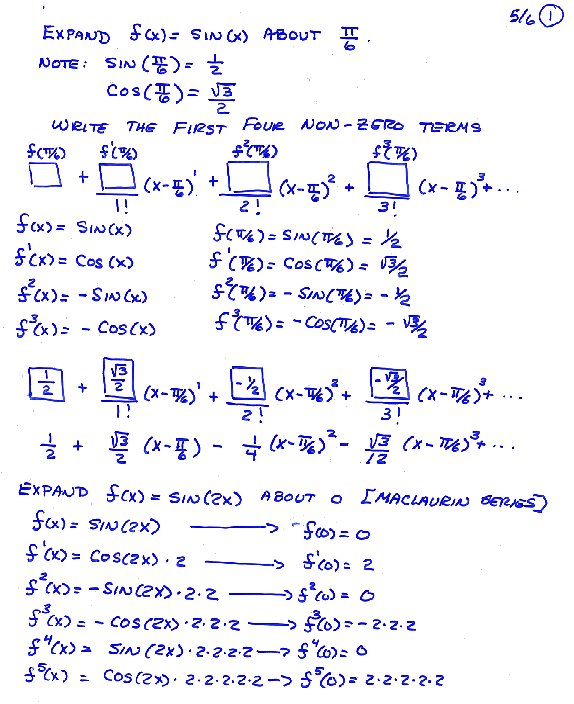 5/6 ①
EXPAND f(x) = SIN(x) ABOUT π/6.
NOTE: SIN(π/6) = 1/2
COS(π/6) = √3/2
WRITE THE FIRST FOUR NON-ZERO TERMS
f(π/6) f'(π/6) f²(π/6) f³(π/6)
□ + □/1! (x-π/6)¹ + □/2! (x-π/6)² + □/3! (x-π/6)³ + ...
f(x) = SIN(x) f(π/6) = SIN(π/6) = 1/2
f'(x) = COS(x) f'(π/6) = COS(π/6) = √3/2
f²(x) = -SIN(x) f²(π/6) = -SIN(π/6) = -1/2
f³(x) = -COS(x) f³(π/6) = -COS(π/6) = -√3/2
1/2 + √3/2/1! (x-π/6)¹ + -1/2/2! (x-π/6)² + -√3/2/3! (x-π/6)³ + ...
1/2 + √3/2 (x-π/6) - 1/4 (x-π/6)² - √3/12 (x-π/6)³ + ...
EXPAND f(x) = SIN(2x) ABOUT 0 [MACLAURIN SERIES]
f(x) = SIN(2x) → f(0) = 0
f'(x) = COS(2x)·2 → f'(0) = 2
f²(x) = -SIN(2x)·2·2 → f²(0) = 0
f³(x) = -COS(2x)·2·2·2 → f³(0) = -2·2·2
f⁴(x) = SIN(2x)·2·2·2·2 → f⁴(0) = 0
f⁵(x) = COS(2x)·2·2·2·2·2 → f⁵(0) = 2·2·2·2·2